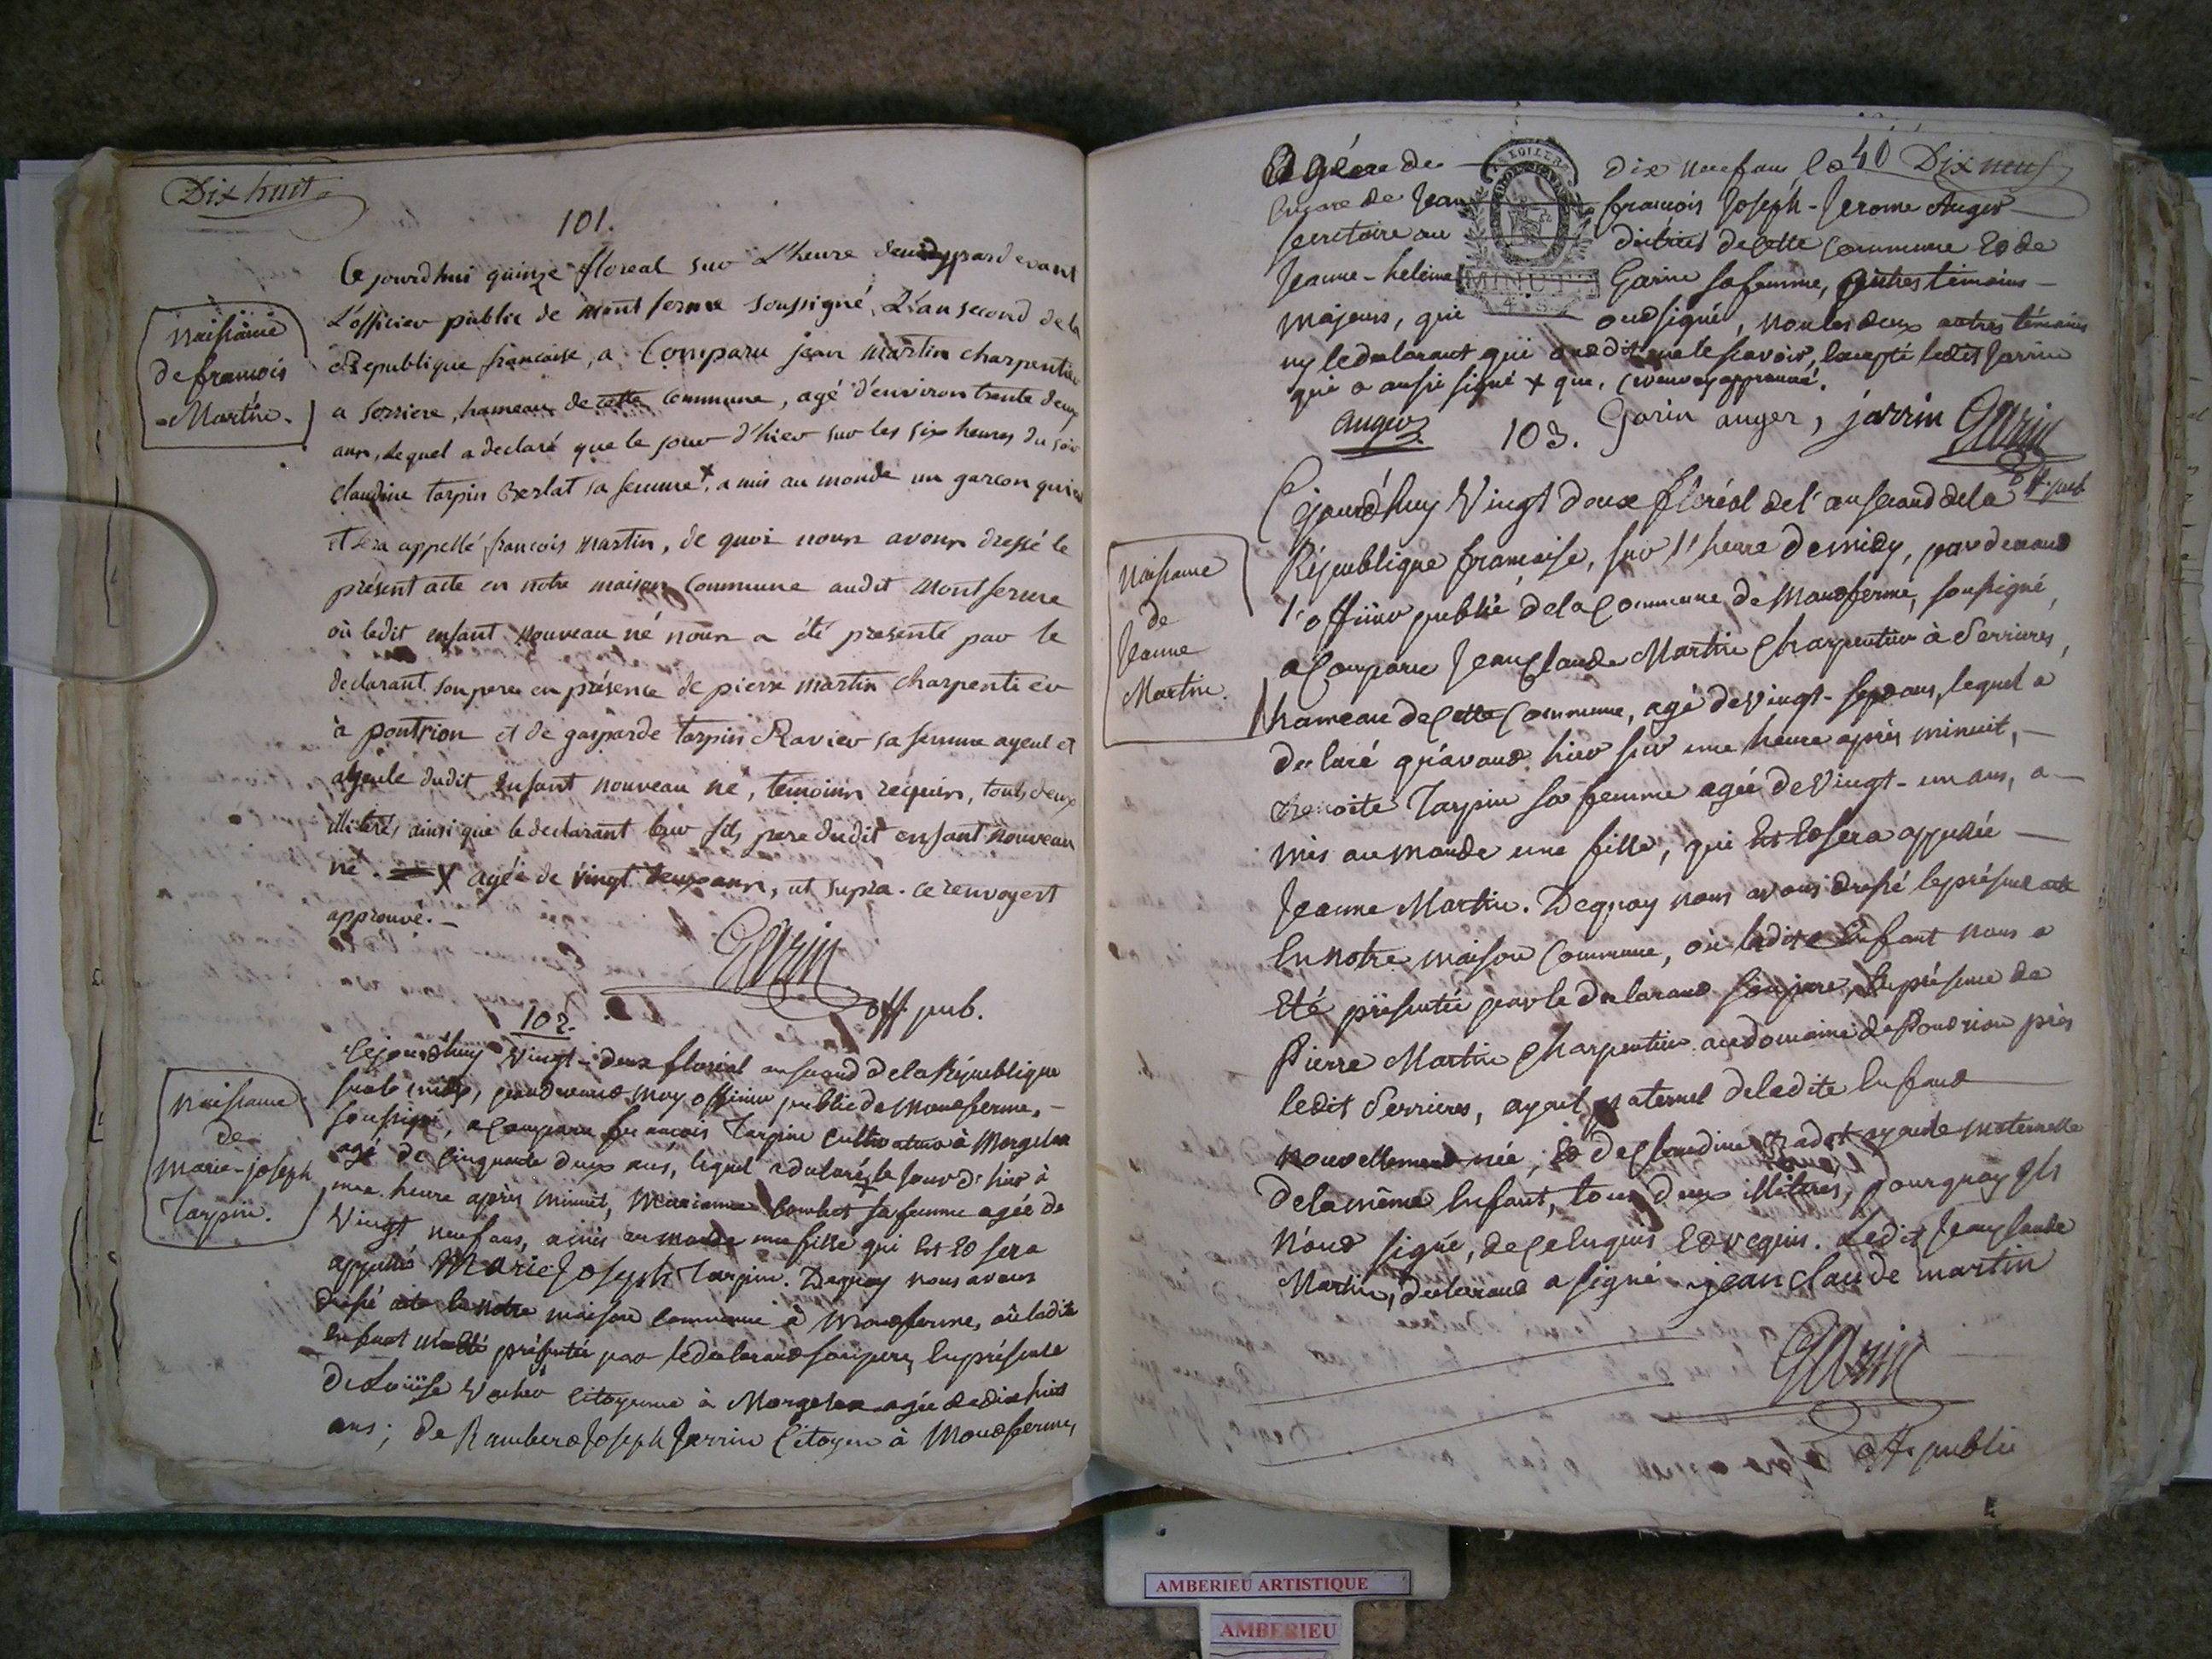 Dix huit
101.
Naissance
de francois
Martin.
Ce jourdhui quinze floreal sur L'heure de midy pard evant
L'officier public de mont ferme soussigné, L'an second de la
Republique francaise, a Comparu jean martin charpentier
a serriere, hameau de cette Commune, agé d'environ trente deux
ans, Lequel a declaré que le jour d'hier sur les six heures du soir
claudine tarpin sa femme +, a mis au monde un garcon qui est
et sera appellé francois martin, de quoi nous avons dressé le
présent acte en notre maison Commune audit Montferme
où ledit enfant nouveau né nous a été presenté par le
declarant son pere en présence de pierre martin charpentier
à pontrion et de gasparde tarpin Ravier sa femme ayeul et
ayeule dudit Enfant nouveau né, temoins requis, touts deux
illiterés ainsi que le declarant leur fils pere dudit enfant nouveau
né. + agée de vingt deux ans, ut supra. ce renvoy est
approuvé.
Garin
off. pub.
102.
Naissance
de
marie-joseph
Tarpin.
Cejourdhuy Vingt-deux floréal an second de la République
sur le midy, pardevant moy officier public de Montferme,
soussigné, a Comparu francois Tarpin Cultivateur à Morgelas
agé de Cinquante deux ans, lequel a declaré, le jour d'hier à
une heure après minuit, Marianne Combet sa femme agée de
Vingt neuf ans, a mis au monde une fille qui Est Et sera
appellée Marie Joseph Tarpin. Dequoy nous avons
dressé acte En notre maison Commune à Montferme, où ladite
Enfant m'a été présentée par le declarant son pere, En présence
De Loüise Vacher Citoyenne à Morgelas agée de dix huit
ans; de Rambert Joseph Jarrin Citoyen à Montferme,
Agé de dix neuf ans Et 40 Dix neuf
Encore de Jean francois Joseph-Jerome Auger
secretaire au district de Cette Commune Et de
Jeanne-helene Garin sa femme, autres témoins
MINUTE
majeurs, qui ont signé, non les deux autres témoins
ny le declarant qui ont dit ne le scavoir, Excepté ledit Jarrin
qui a aussi signé + que, Ce renvoy approuvé.
auger Garin auger, jarrin Garin
off. pub
103.
Naissance
de
Jeanne
Martin.
Cejourd'huy Vingt deux floréal de l'an second de la
République francaise, sur l'heure de midy, par devant
l'officier public de la Commune de Montferme, soussigné,
a Comparu Jean Claude Martin Charpentier à Serrieres,
hameau de Cette Commune, agé de Vingt-sept ans, lequel a
declaré qu'avant hier sur une heure après minuit,
Benoite Tarpin sa femme agée de Vingt-un ans, a
mis au monde une fille, qui Est Et sera appellée
Jeanne Martin. Dequoy nous avons dressé le présent acte
En notre maison Commune, où ladite Enfant nous a
Eté présentée par le declarant son pere, En présence de
Pierre Martin Charpentier au domaine de Pontrion près
ledit Serrieres, ayeul paternel de ladite Enfant
nouvellement née, Et de Claudine ayeule maternelle
de la même Enfant, tous deux illiterés, pourquoy Ils
n'ont signé, de Ce Enquis Et requis. Ledit Jean Claude
Martin, declarant a signé jean claude martin
Garin
off. public
AMBERIEU ARTISTIQUE
AMBERIEU